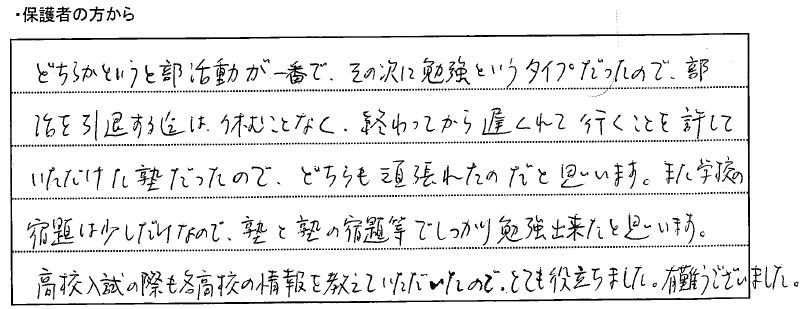 ・保護者の方から
どちらかというと部活動が一番で、その次に勉強というタイプだったので、部
活を引退する迄は、休むことなく、終わってから遅くれて行くことを許して
いただけた塾だったので、どちらも頑張れたのだと思います。また学校の
宿題は少しだけなので、塾と塾の宿題等でしっかり勉強出来たと思います。
高校入試の際も各高校の情報を教えていただいたので、とても役立ちました。有難うございました。